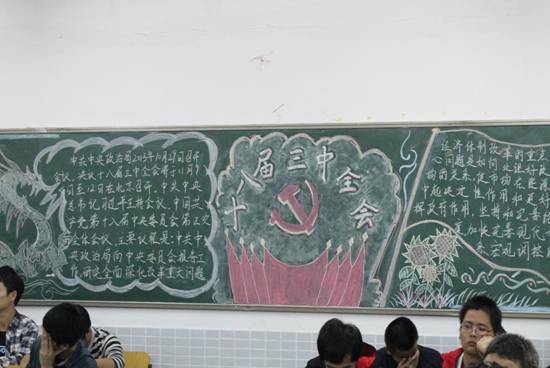 中共中央政治局2013年10月29日召开
会议,决议十八届三中全会将于11月9
日至12日在北京召开.中共中央
总书记习近平主持会议,中国共
产党第十八届中央委员会第三次
全体会议,主要议程是:中共中
央政治局向中央委员会报告工
作,研究全面深化改革重大问题
十八届三中全会
经济体制改革的重点
心问题是如何处理好政
的关系,使市场在资
中起决定性作用和更
挥政府作用,坚持和完善
更加
宏观调控